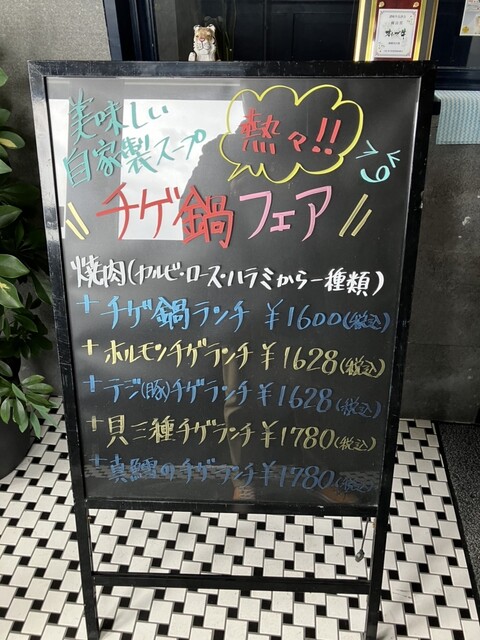 美味しい
自家製スープ
熱々!!
チゲ鍋フェア
焼肉(カルビ・ロース・ハラミから一種類)
+チゲ鍋ランチ ¥1600(税込)
+ホルモンチゲランチ ¥1628(税込)
+テジ(豚)チゲランチ ¥1628(税込)
+貝三種チゲランチ ¥1780(税込)
+真鱈のチゲランチ ¥1780(税込)